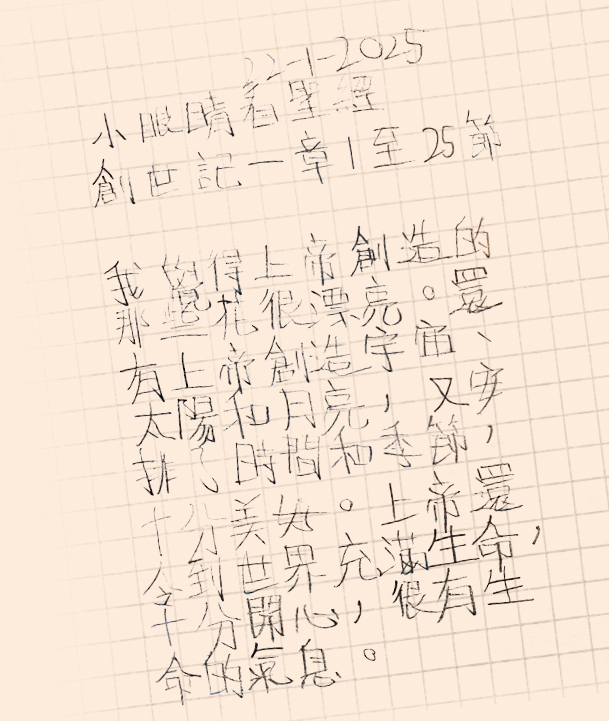 22-1-2025
小眼睛看聖經
創世記一章1至25節
我覺得上帝創造的
那些花很漂亮。還
有上帝創造宇宙、
太陽和月亮，又安
排了時間和季節，
十分美妙。上帝還
令到世界充滿生命，
十分開心，很有生
命的氣息。